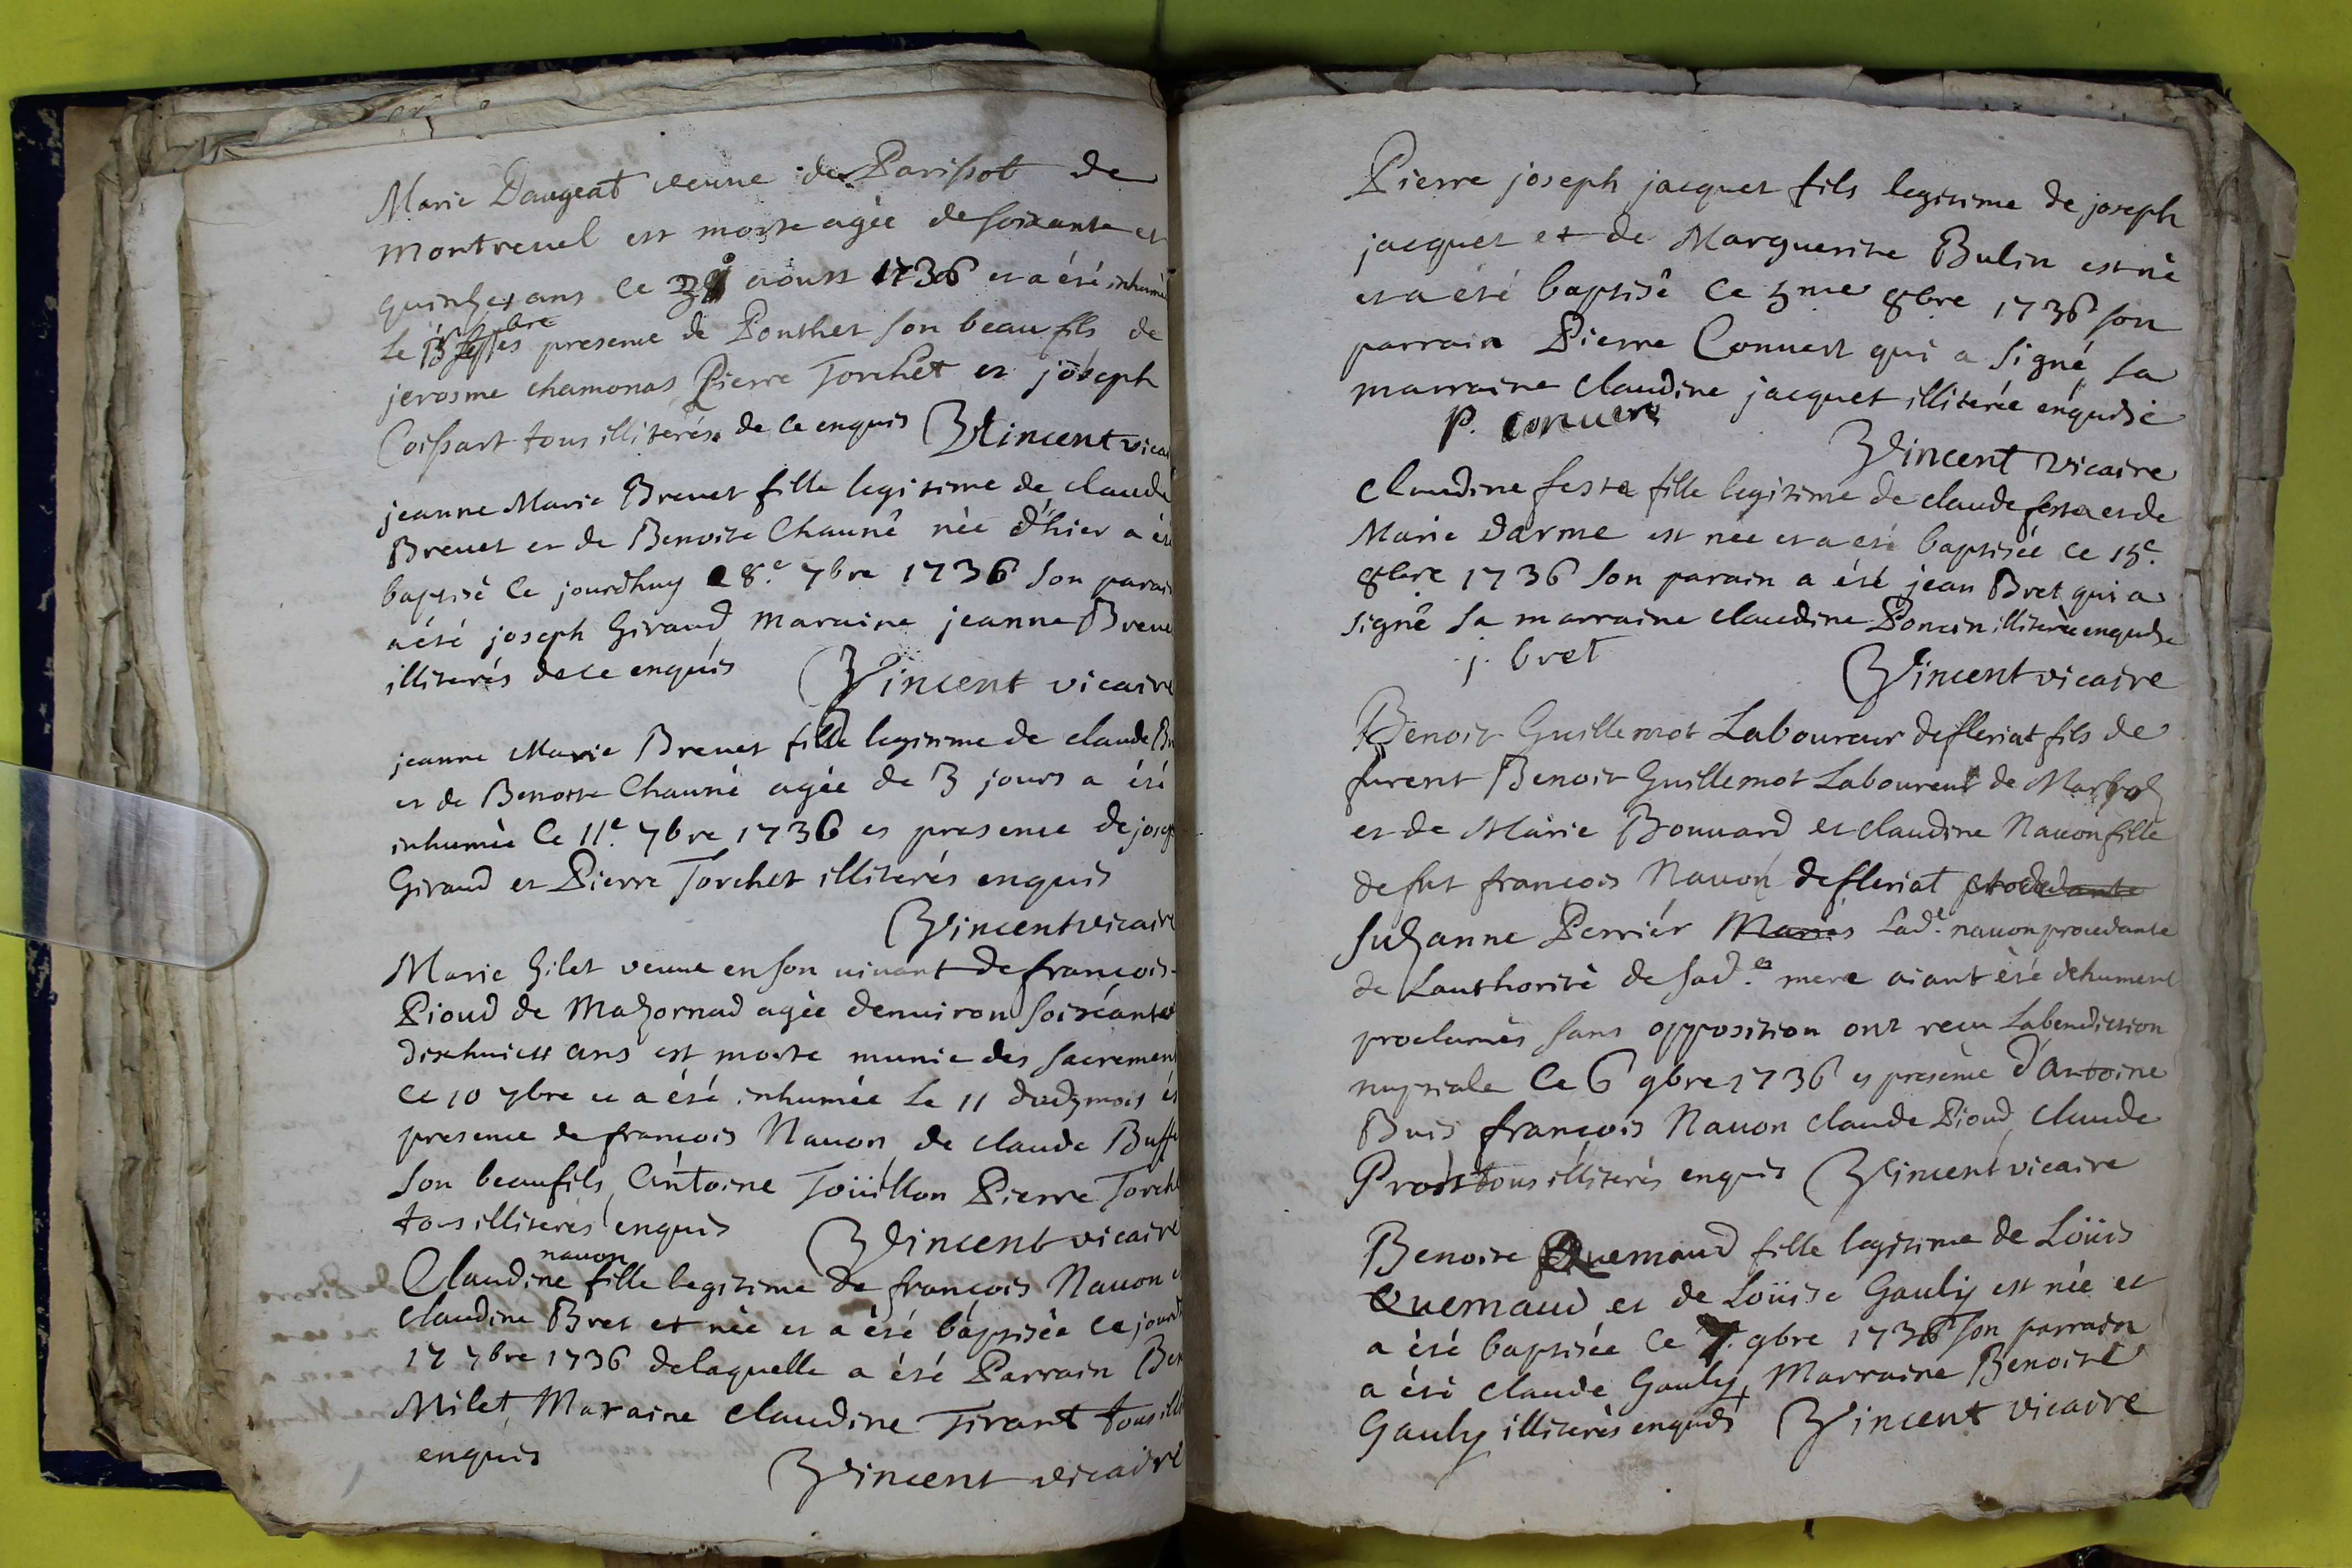 Marie Daugeat veuve de Parissot de
montreuel est morte agée de soixante et
quinze ans le aoust 1736 et a été inhumée
Le es presence de Ponthet son beau fils de
jerosme chamonas Pierre Torchet et joseph
Coissart tous illiterés de ce enquis Vincent vicai
jeanne Marie Brevet fille legitime de claude
Brevet et de Benoite Chauné née d'hier a été
baptisé Ce jourdhuy 8.e 7bre 1736 son parai
a été joseph Giraud maraine jeanne Breve
illiterés de ce enquis Vincent vicaire
jeanne Marie Brevet fille legitime de claude Br
et de Benoite Chauné agée de 3 jours a été
inhumée Ce 11.e 7bre 1736 es presence de josep
Giraud et Pierre Torchet illiterés enquis
Vincent vicaire
Marie Gilet veuve en son vivant de francois
Pioud de Mazornad agée denviron soixante
dixhuict ans est morte munie des sacremen
Ce 10 7bre et a été inhumée Le 11 dudz mois és
presence de francois Nauon de claude Buff
son beaufils Antoine Toüillon Pierre Torch
tous illiterés enquis Vincent vicaire
nauon
Claudine fille legitime de françois Nauon e
claudine Bret et née et a été baptisée Ce jourd
17 7bre 1736 de laquelle a été Parrain Ben
Milet, Maraine claudine Tirant tous illi
enquis
Vincent vicaire
Pierre joseph jacquet fils legitime de joseph
jacquet et de Marguerite Bulin est né
et a été baptisé Ce 5me 8bre 1736 son
parrain Pierre Convert qui a signé sa
marraine claudine jacquet illiterée enquise
P. convert
Vincent vicaire
claudine festa fille legitime de claude festa et de
Marie Darme est née et a été baptisée Ce 15.e
8bre 1736 son parain a été jean Bret qui a
signé sa marraine claudine Poncin illiterée enquise
j. bret
Vincent vicaire
Benoit Guillemot Laboureur defleriat fils de
furent Benoit Guillemot Laboureur de
et de Marie Bouuard et claudine Nauon fille
de fut francois Nauon defleriat procedante
Suzanne Perriér Mariés Lad.e nauon procedante
de Lauthorité de sad.e mere aiant été dehument
proclamés sans opposition ont recu Labenediction
nuptiale Ce 6 9bre 1736 es presence d'antoine
Buis françois Nauon claude Pioud claude
Prost tous illiterés enquis Vincent vicaire
Benoite Quemaud fille legitime de Loüis
Quemaud et de Loüise Gauly est née et
a été baptisée Ce 7. 9bre 1736 son parrain
a été claude Gauly Marraine Benoite
Gauly illiterés enquis Vincent vicaire